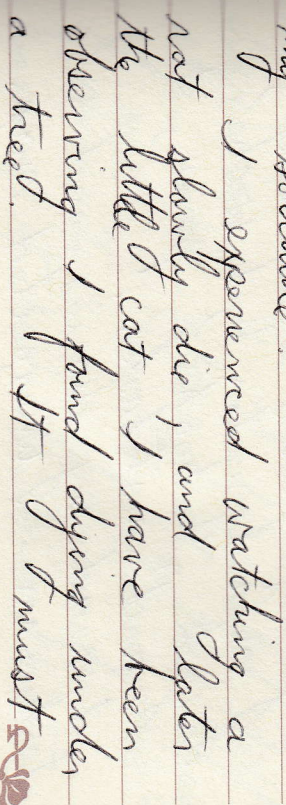 I experienced watching a
rat slowly die, and later
the little cat I have been
observing I found dying under
a tree. It must